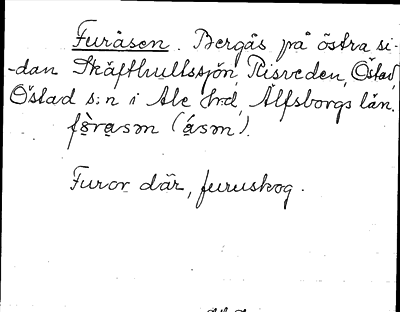 Furåsen. Bergås på östra si-
-dan Skäfthultssjön, Risveden, Östad,
Östad s:n i Ale hrd, Älfsborgs län.
Furor där, furuskog.